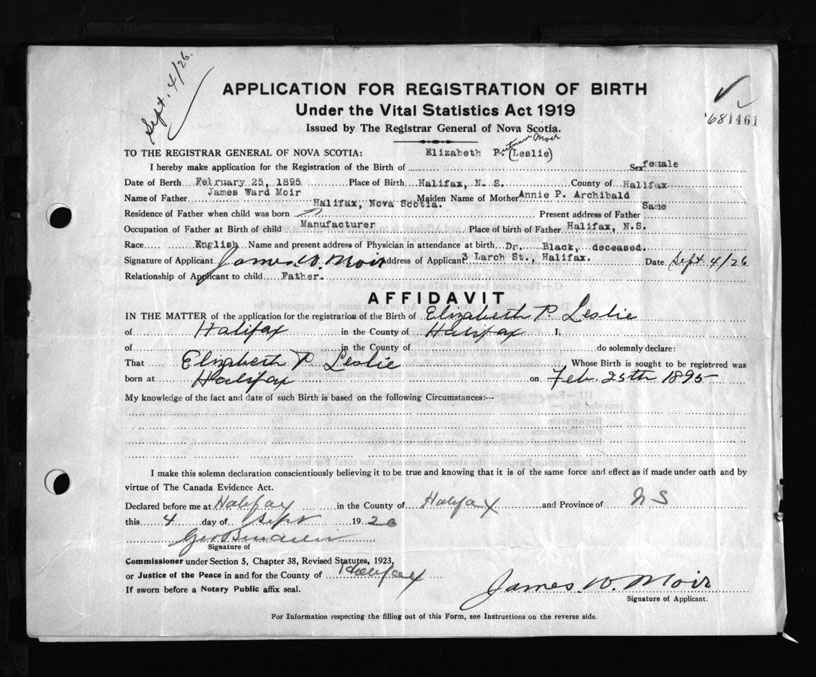 Sept. 4/26.
APPLICATION FOR REGISTRATION OF BIRTH
Under the Vital Statistics Act 1919
Issued by The Registrar General of Nova Scotia.
681461
Moir
TO THE REGISTRAR GENERAL OF NOVA SCOTIA: Elizabeth P. (Leslie)
I hereby make application for the Registration of the Birth of Sex female
Date of Birth February 25, 1895 Place of Birth Halifax, N. S. County of Halifax
Name of Father James Ward Moir Maiden Name of Mother Annie P. Archibald
Residence of Father when child was born Halifax, Nova Scotia. Present address of Father Same
Occupation of Father at Birth of child Manufacturer Place of birth of Father Halifax, N.S.
Race English Name and present address of Physician in attendance at birth Dr. Black, deceased.
Signature of Applicant James W. Moir Address of Applicant 3 Larch St., Halifax. Date Sept. 4/26
Relationship of Applicant to child Father.
AFFIDAVIT
IN THE MATTER of the application for the registration of the Birth of Elizabeth P. Leslie
of Halifax in the County of Halifax I,
of in the County of do solemnly declare:
That Elizabeth P. Leslie Whose Birth is sought to be registered was
born at Halifax on Feb. 25th 1895
My knowledge of the fact and date of such Birth is based on the following Circumstances:--
I make this solemn declaration conscientiously believing it to be true and knowing that it is of the same force and effect as if made under oath and by
virtue of The Canada Evidence Act.
Declared before me at Halifax in the County of Halifax and Province of N S
this 4 day of Sept 1926
Signature of
Commissioner under Section 5, Chapter 38, Revised Statutes, 1923,
or Justice of the Peace in and for the County of Halifax
If sworn before a Notary Public affix seal.
James W. Moir
Signature of Applicant.
For Information respecting the filling out of this Form, see Instructions on the reverse side.